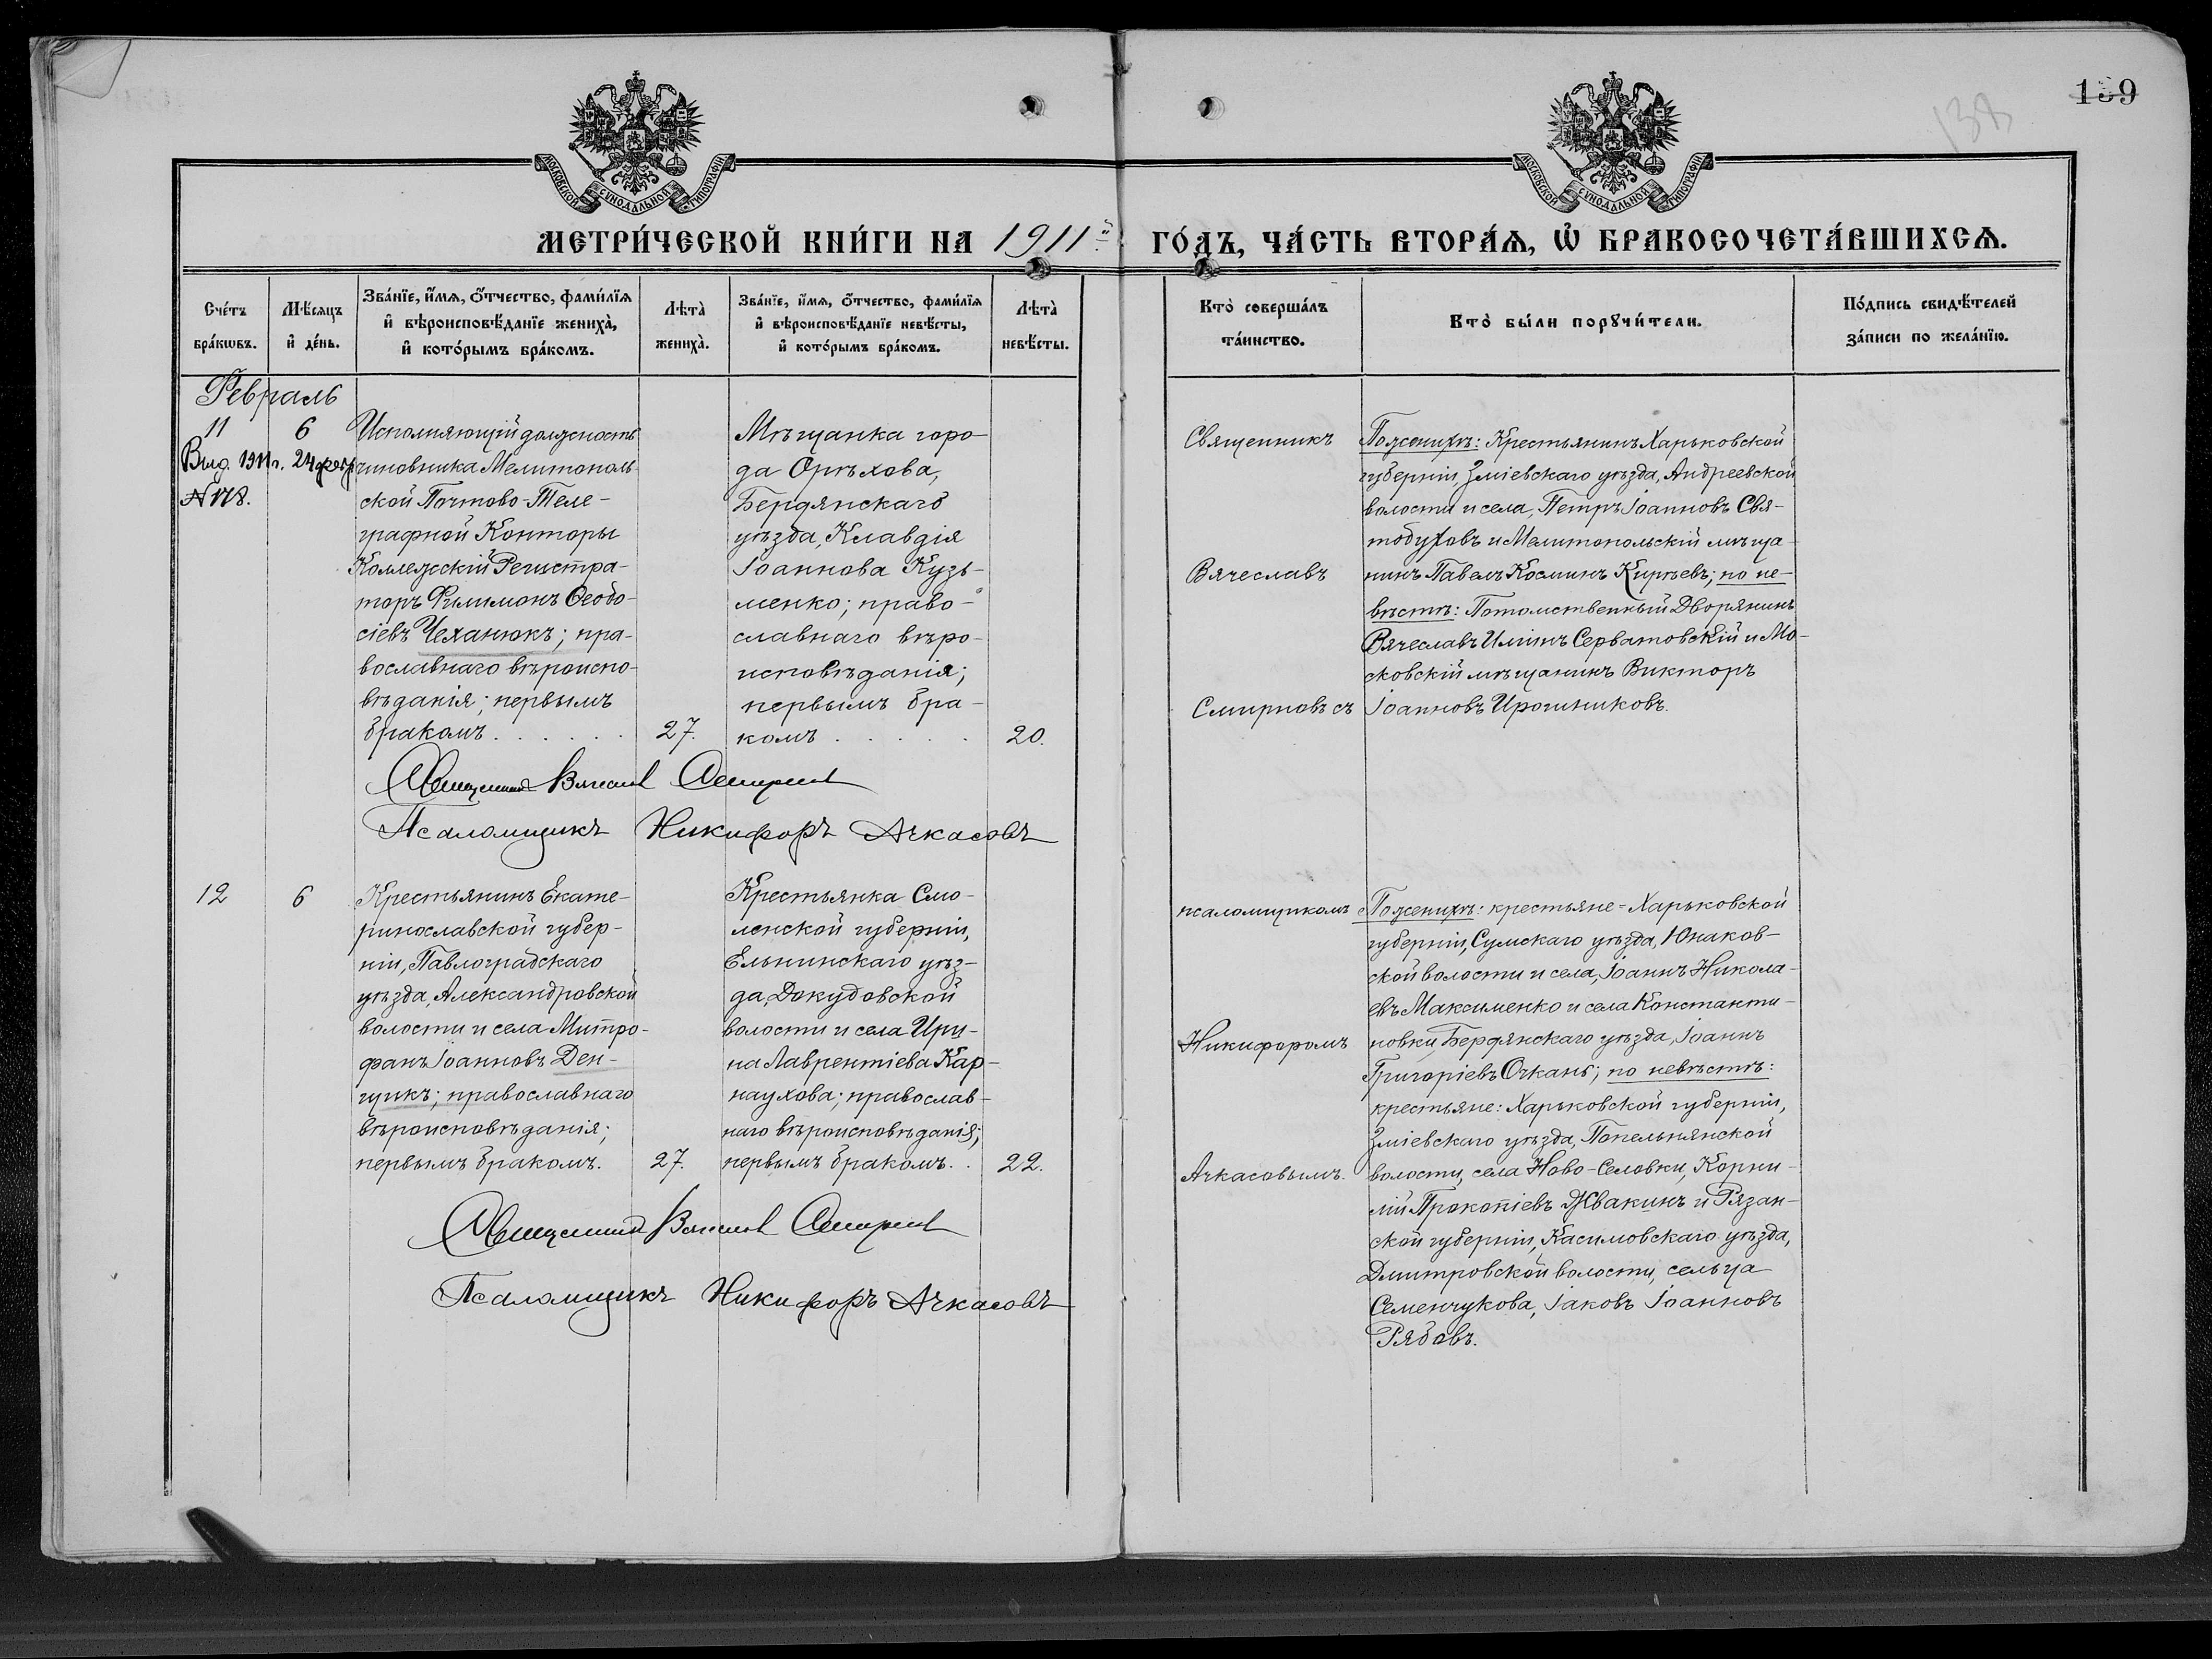 МОСКОВСКОЙ СѴНОДАЛЬНОЙ ТИПОГРАФІИ
МОСКОВСКОЙ СѴНОДАЛЬНОЙ ТИПОГРАФІИ
139
138
МЕТРИ́ЧЕСКОЙ КНИ́ГИ НА 1911й ГО́ДЪ, ЧА́СТЬ ВТОРА́Ѧ, Ѽ БРАКОСОЧЕТА́ВШИХСѦ.
Сче́тъ бра́кѡвъ.
Мѣ́сяцъ и҆ де́нь.
Зва́нїе, и҆́мѧ, ѻ҆́тчество, фами́лїѧ
и҆ вѣроисповѣ́данїе жениха̀,
и҆ кото́рымъ бра́комъ.
Лѣта̀ жениха̀.
Зва́нїе, и҆́мѧ, ѻ҆́тчество, фами́лїѧ
и҆ вѣроисповѣ́данїе невѣ́сты,
и҆ кото́рымъ бра́комъ.
Лѣта̀ невѣ́сты.
Кто̀ соверша́лъ та́инство.
Кто̀ бы́ли порꙋчи́тели.
По́дпись свидѣ́телей за́писи по жела́нїю.
Февраль
11
Выд. 1911 г. 24 февр
№ 178.
6
Исполняющій должность
чиновника Мелитополь
ской Почтово-Теле-
графной Конторы
Коллежскій Регистра-
торъ Филимонъ Ѳеодо-
сіевъ Чеханюкъ; пра-
вославнаго вѣроиспо-
вѣданія; первымъ
бракомъ . . . . . .
27.
Мѣщанка горо-
да Орѣхова,
Бердянскаго
уѣзда, Клавдія
Іоаннова Кузь-
менко; право-
славнаго вѣро-
исповѣданія;
первымъ бра-
комъ . . . . .
20.
Священникъ
Вячеславъ
Смирновъ съ
По женихѣ: Крестьянинъ Харьковской
губерніи, Зміевскаго уѣзда, Андреевской
волости и села, Петръ Іоанновъ Свя-
тодуховъ и Мелитопольскій мѣща-
нинъ Павелъ Косминъ Кирѣевъ; по не-
вѣстѣ: Потомственный Дворянинъ
Вячеславъ Иліинъ Серватовскій и Мо-
сковскій мѣщанинъ Викторъ
Іоанновъ Ирошниковъ.
Священникъ Вячеслав Смирнов
Псаломщикъ Никифоръ Ачкасовъ
12
6
Крестьянинъ Екате-
ринославской губер-
ніи, Павлоградскаго
уѣзда, Александровской
волости и села Митро-
фанъ Іоанновъ Ден-
щикъ; православнаго
вѣроисповѣданія;
первымъ бракомъ.
27.
Крестьянка Смо-
ленской губерніи,
Ельнинскаго уѣз-
да, Докудовской
волости и села Ири-
на Лаврентіева Кар-
наухова; православ-
наго вѣроисповѣданія;
первымъ бракомъ. .
22.
псаломщикомъ
Никифоромъ
Ачкасовымъ.
По женихѣ: крестьяне = Харьковской
губерніи, Сумскаго уѣзда, Юнаков-
ской волости и села, Іоаннъ Никола-
евъ Максименко и села Константи-
новки, Бердянскаго уѣзда, Іоаннъ
Григоріевъ Очкань; по невѣстѣ:
крестьяне: Харьковской губерніи,
Зміевскаго уѣзда, Попельнянской
волости, села Ново-Селовки, Корни-
лій Прокопіевъ Жвакинъ и Рязан-
ской губерніи, Касимовскаго уѣзда,
Дмитровской волости, сельца
Семенчукова, Іаковъ Іоанновъ
Рябовъ.
Священникъ Вячеслав Смирнов
Псаломщикъ Никифоръ Ачкасовъ